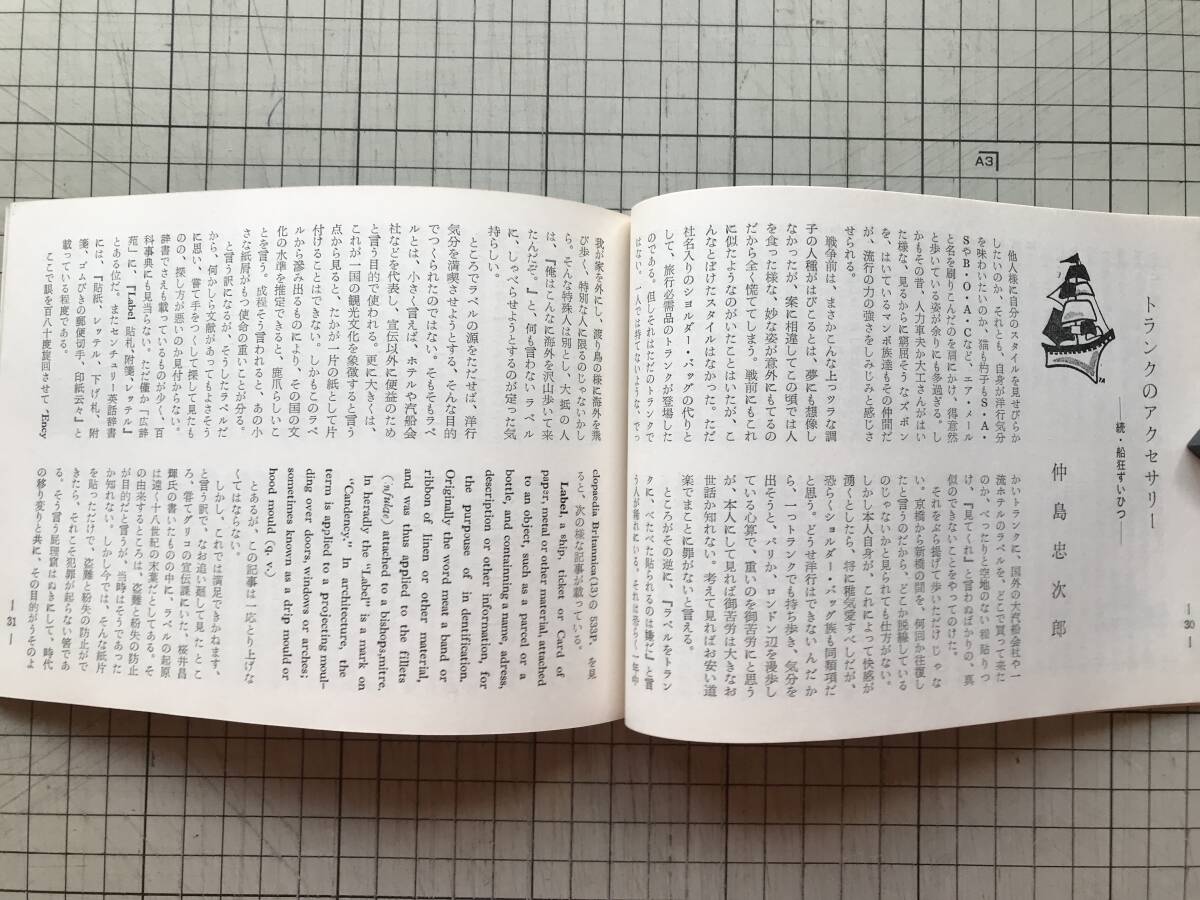 A3
トランクのアクセサリー
――続・船狂ずいひつ――
仲島忠次郎
他人様に自分のスタイルを見せびらか
したいのか、それとも、自身が洋行気分
を味わいたいのか、猫も杓子もS・A・
SやB・O・A・Cなどと、エア・メール
と名を刷りこんだのを肩にかけ、得意然
と歩いている姿が余りにも多過ぎる。し
かもその昔、人力車夫か大工さんがはい
た様な、見るからに窮屈そうなズボン
を、はいているマンボ族達もその仲間だ
が、流行の力の強さをしみじみと感じさ
せられる。
戦争前は、まさかこんな上ッツラな調
子の人種がはびこるとは、夢にも想像し
なかったが、案に相違してこの頃では人
を食った様な、妙な姿が意外にもてるの
だから全く慌ててしまう。戦前にもこれ
に似たようなのがいたことはいたが、こ
んなとぼけたスタイルはなかった。ただ
社名入りのショルダー・バッグの代りと
して、旅行必需品のトランクが登場した
のである。但しそれはただのトランクで
はない。一人では持てないような、でっ
かいトランクに、国外の大汽船会社や一
流ホテルのラベルを、どこで買って来た
のか、べったりと空地のない程貼りつ
け、『見てくれ』と言わぬばかりの、真
似のできないことをやってのけた。
それをぶら提げて歩いただけじゃな
い。京橋から新橋の間を、何回か往復し
たと言うのだから、どこか脱線している
のじゃないかと見られても仕方がない。
しかし本人自身が、これによって快感が
湧くとしたら、将に稚気愛すべしだが、
恐らくショルダー・バッグ族も同類項だ
と思う。どうせ洋行はできないんだか
ら、一つトランクでも持ち歩き、気分を
出そうと、パリか、ロンドン辺を漫歩し
ている心算で、重いのを御苦労にと思う
が、本人にして見れば御苦労は大きなお
世話か知れない。考えて見ればお安い道
楽でまことに罪がないと言える。
ところがその逆に、『ラベルをトラン
クに、べたべた貼られるのは嫌だ』と言
う人が稀れにいる。それは恐らく一年中
―30―
我が家を外にし、渡り鳥の様に海外を飛
び歩く、特別な人に限るのじゃないかし
ら。そんな特殊人は別とし、大抵の人
は、『俺はこんなに海外を沢山歩いて来
たんだぞ。』と、何も言わないラベル
に、しゃべらせようとするのが定った気
持らしい。
ところでラベルの源をただせば、洋行
気分を満喫させようとする、そんな目的
でつくられたのではない。そもそもラベ
ルとは、小さく言えば、ホテルや汽船会
社などを代表し、宣伝以外に便益のため
と言う目的で使われる。更に大きくは、
これが一国の観光文化を象徴すると言う
点から見ると、たかが一片の紙として片
付けることはできない。しかもこのラベ
ルから滲み出るものにより、その国の文
化の水準を推定できると、鹿爪らしいこ
とを言う。成程そう言われると、あの小
さな紙屑がもつ使命の重いことが分る。
と言う訳になるが、そうしたラベルだ
から、何かしら文献があってもよさそう
に思い、嘗て手をつくして探して見たも
のの、探し方が悪いのか見付からない。
辞書でさえも載っているものが少く、百
科事典にも見当らない。ただ僅か「広辞
苑」に、『Label 貼札、附箋、レッテル』
とある位だ。またセンチュリー英語辞書
には、『貼紙、レッテル、下げ札、附
箋、ゴムびきの郵便切手、印紙云々』と
載っている程度である。
ここで踵を百八十度旋回させて 'Ency
clopaedia Britannica(13)の 533P. を見
ると、次の様な記事が載っている。
Label, a ship, ticket or Card of
paper, metal or other material, attached
to an object, such as a parcel or a
bottle, and containning a name, adress,
description or other information, for
the purpouse of indentification.
Originally the word meat a band or
ribbon of linen or other material,
and was thus applied to the fillets
(infulae) attached to a bishops,mitre,
In heradly the "Label" is a mark on
"Candency." In architecture, the
term is applied to a projecting mul-
ding over doors, windows or arches;
sometimes known as a drip mould or
hood mould (q. v.)
とあるが、この記事は一応とり上げな
くてはならない。
しかし、これでは満足できかねます。
と言う訳で、なお追い廻して見たとこ
ろ、嘗てグリコの宣伝課にいた、桜井昌
輝氏の書いたものの中に、ラベルの起原
は遠く十八世紀の末葉だとしてある。そ
の由来するところは、盗難や紛失の防止
が目的だと言うが、当時はそうであった
か知れない。しかし今では、そんな紙片
を貼っただけで、盗難と紛失の防止がで
きたら、それこそ犯罪が起らない筈であ
る。そう言う屁理窟はぬきにして、時代
の移り変りと共に、その目的がうそのよ
―31―